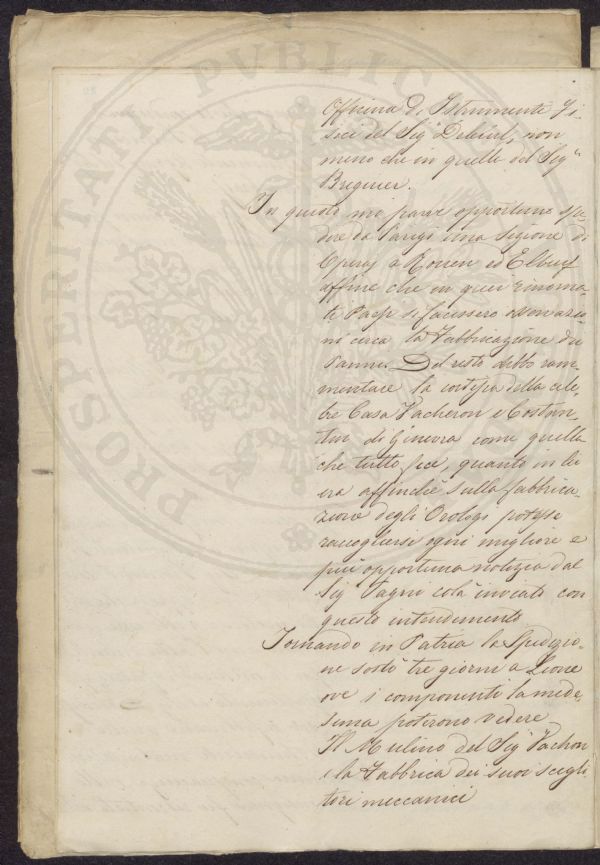 Officina di Istrumenti Fi-
sici del Sigr Deleuil, non
meno che in quelle del Sigr
Breguer.
In questo mi parve opportuno spe-
dire da Parigi una Sezione di
Operaj a Rouen ed Elbeuf
affine che in quei rinoma-
ti Paesi si facessero osservazio-
ni circa la Fabbricazione dei
Panni. Del resto debbo ram-
mentare la cortesia della cele-
bre Casa Vacheron e Costan-
tin di Ginevra come quella
che tutto fece, quanto in lei
era affinchè sulla fabbrica-
zione degli Orologi potesse
raccogliersi ogni migliore e
più opportuna notizia dal
Sig Pagni colà inviato con
questo intendimento
Tornando in Patria la Spedizio-
ne sostò tre giorni a Lione
ove i componenti la mede-
sima poterono vedere
Il Mulino del Sigr Vachon
e la Fabbrica dei suoi scegli
tori meccanici
PROSPERITATI PVBLICAE